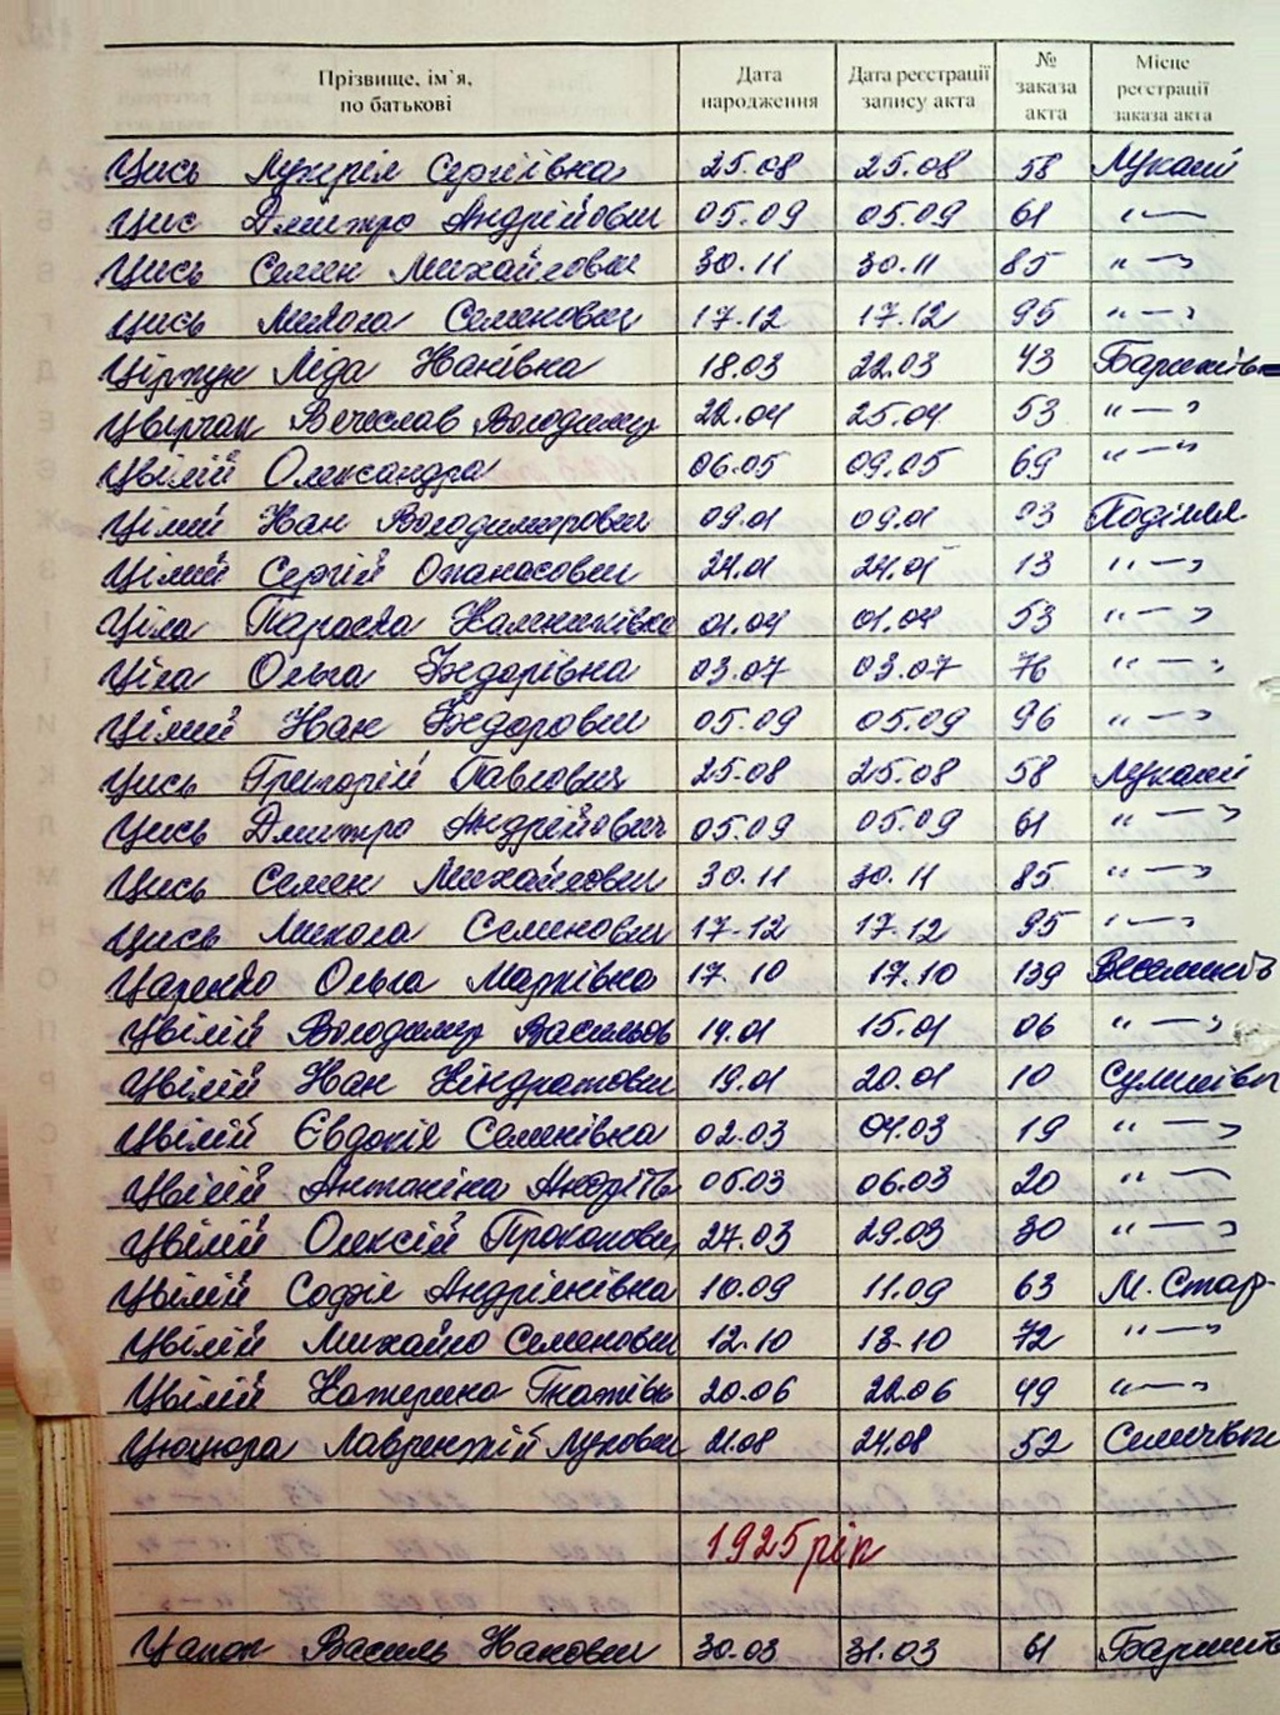 Прізвище, ім`я, по батькові Дата народження Дата реєстрації запису акта № заказа акта Місце реєстрації заказа акта
Цись Сергіївна 25.08 25.08 58 Лукаші
Цис Дмитро Андрійович 05.09 05.09 61 " — "
Цись Семен Михайлович 30.11 30.11 85 " — "
Цись Микола Семенович 17.12 17.12 95 " — "
Ліда Іванівна 18.03 22.03 43 Баришівка
Цвірчак Вечеслав Володимир 22.04 25.04 53 " — "
Цвілій Олександра 06.05 09.05 69 " — "
Цілий Іван Володимирович 09.01 09.01 03 Поділля
Цілий Сергій Опанасович 24.01 24.01 13 " — "
Ціла Параска 01.04 01.04 53 " — "
Ціла Ольга Федорівна 03.07 03.07 76 " — "
Цілий Іван Федорович 05.09 05.09 96 " — "
Цись Григорій Павлович 25.08 25.08 58 Лукаші
Цись Дмитро Андрійович 05.09 05.09 61 " — "
Цись Семен Михайлович 30.11 30.11 85 " — "
Цись Микола Семенович 17.12 17.12 95 " — "
Царенко Ольга Марківна 17.10 17.10 139
Цвілій Володимир Васильов 14.01 15.01 06 " — "
Цвілій Іван Кіндратович 19.01 20.01 10
Цвілій Євдокія Семенівна 02.03 04.03 19 " — "
Цвілій Антоніна Андріїв 05.03 06.03 20 " —
Цвілій Олексій Прокопович 27.03 29.03 30 " — "
Цвілій Софія Андріянівна 10.09 11.09 63 М. Стар-
Цвілій Михайло Семенович 12.10 13.10 72 " — "
Цвілій Катерина Гнатівн 20.06 22.06 49 " — "
Цюцюра Лаврентій Лукович 21.08 24.08 52
1925 рік
Цапок Василь Іванович 30.03 31.03 61